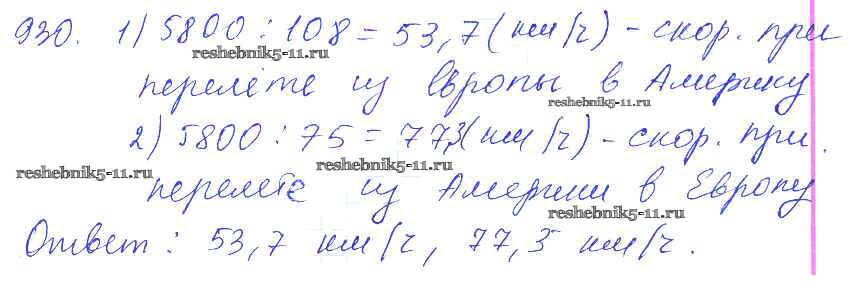 930. 1) 5800 : 108 = 53,7 (км/ч) - скор. при
reshebnik5-11.ru
перелёте из Европы в Америку
reshebnik5-11.ru
2) 5800 : 75 = 77,3 (км/ч) - скор. при
reshebnik5-11.ru
reshebnik5-11.ru
перелёте из Америки в Европу
reshebnik5-11.ru
Ответ: 53,7 км/ч, 77,3 км/ч.